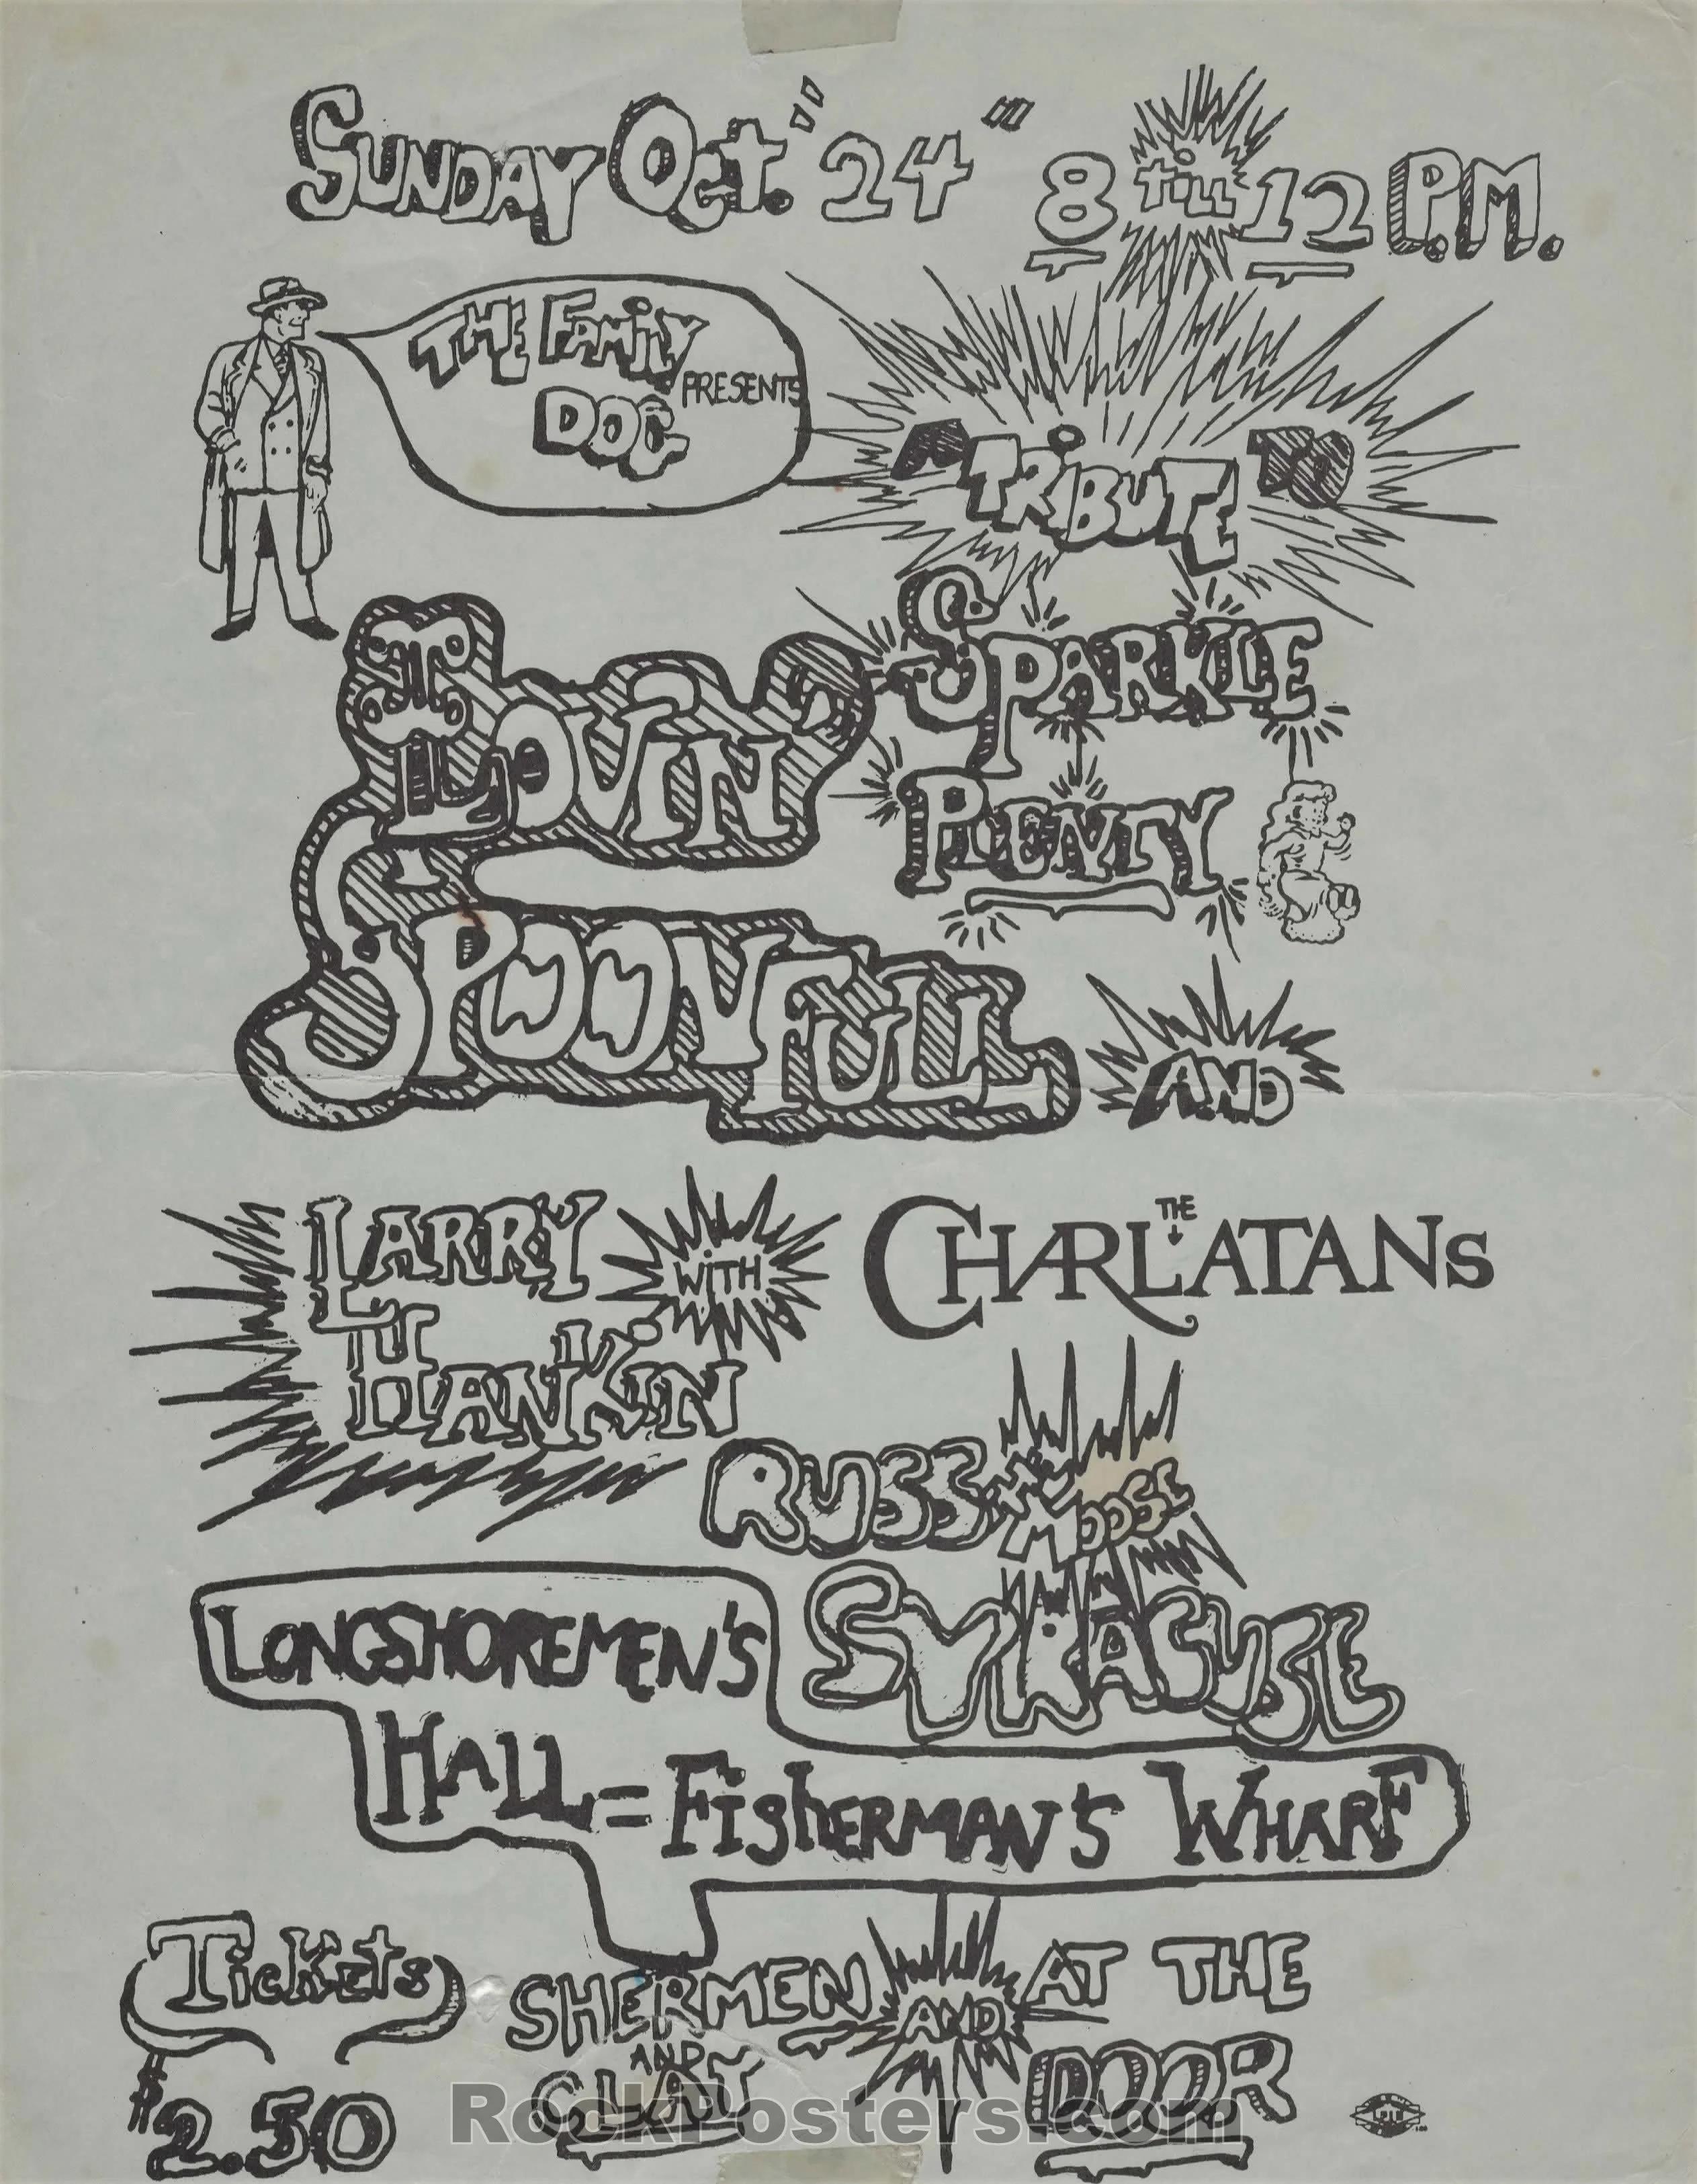 SUNDAY OCT. "24" 8 TILL 12 P.M.
THE FAMILY DOG PRESENTS
A TRIBUTE TO
SPARKLE
PLENTY
LOVIN'
SPOONFULL
AND
LARRY
HANKIN
WITH
THE
CHARLATANS
RUSS THE MOOSE
SYRACUSE
LONGSHOREMEN'S
HALL = FISHERMAN'S WHARF
TICKETS
$2.50
SHERMEN
AND
CLAY
AND
AT THE
DOOR
RockPosters.com